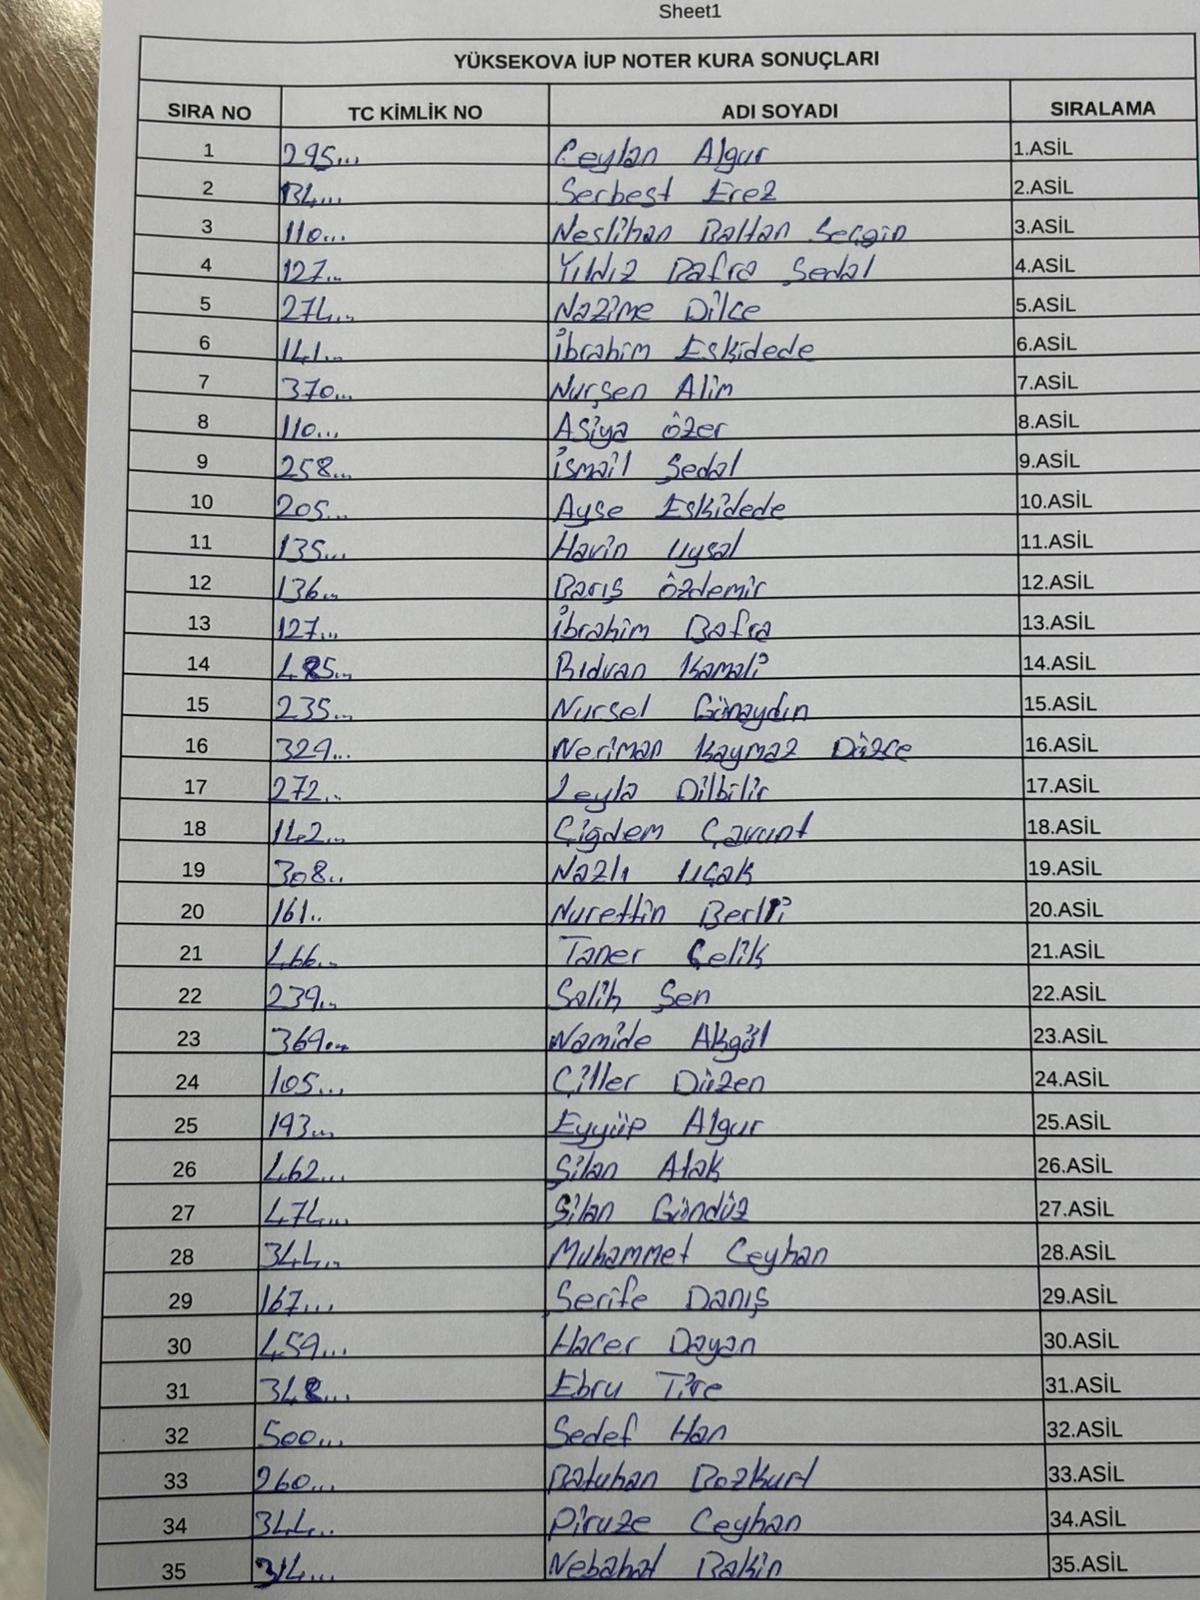 Sheet1
YÜKSEKOVA İUP NOTER KURA SONUÇLARI
SIRA NO TC KİMLİK NO ADI SOYADI SIRALAMA
1 295... Ceylan Algur 1.ASİL
2 134... Serbest Erez 2.ASİL
3 110... Neslihan Baltan Seçgin 3.ASİL
4 127... Yıldız Bafra Şedal 4.ASİL
5 274... Nazime Dilce 5.ASİL
6 141... İbrahim Eskidede 6.ASİL
7 370... Nurşen Alim 7.ASİL
8 110... Asiya Özer 8.ASİL
9 258... İsmail Şedal 9.ASİL
10 205... Ayşe Eskidede 10.ASİL
11 135... Havin Uysal 11.ASİL
12 136... Barış Özdemir 12.ASİL
13 127... İbrahim Bafra 13.ASİL
14 485... Rıdvan Kamali 14.ASİL
15 235... Nursel Günaydın 15.ASİL
16 329... Neriman Kaymaz Düzce 16.ASİL
17 272... Leyla Dilbilir 17.ASİL
18 142... Çigdem Çavunt 18.ASİL
19 308.. Nazlı Uçak 19.ASİL
20 161.. Nurettin 20.ASİL
21 466... Taner Çelik 21.ASİL
22 239... Salih Şen 22.ASİL
23 369... Namide Akgül 23.ASİL
24 105... Çiller Düzen 24.ASİL
25 193... Eyyüp Algur 25.ASİL
26 462... Şilan Atak 26.ASİL
27 474... Şilan Gündüz 27.ASİL
28 344... Muhammet Ceyhan 28.ASİL
29 167... Şerife Danış 29.ASİL
30 459... Hacer Dayan 30.ASİL
31 348... Ebru Tire 31.ASİL
32 500... Sedef Han 32.ASİL
33 260... Batuhan Bozkurt 33.ASİL
34 344... Piruze Ceyhan 34.ASİL
35 314... Nebahat Bakin 35.ASİL